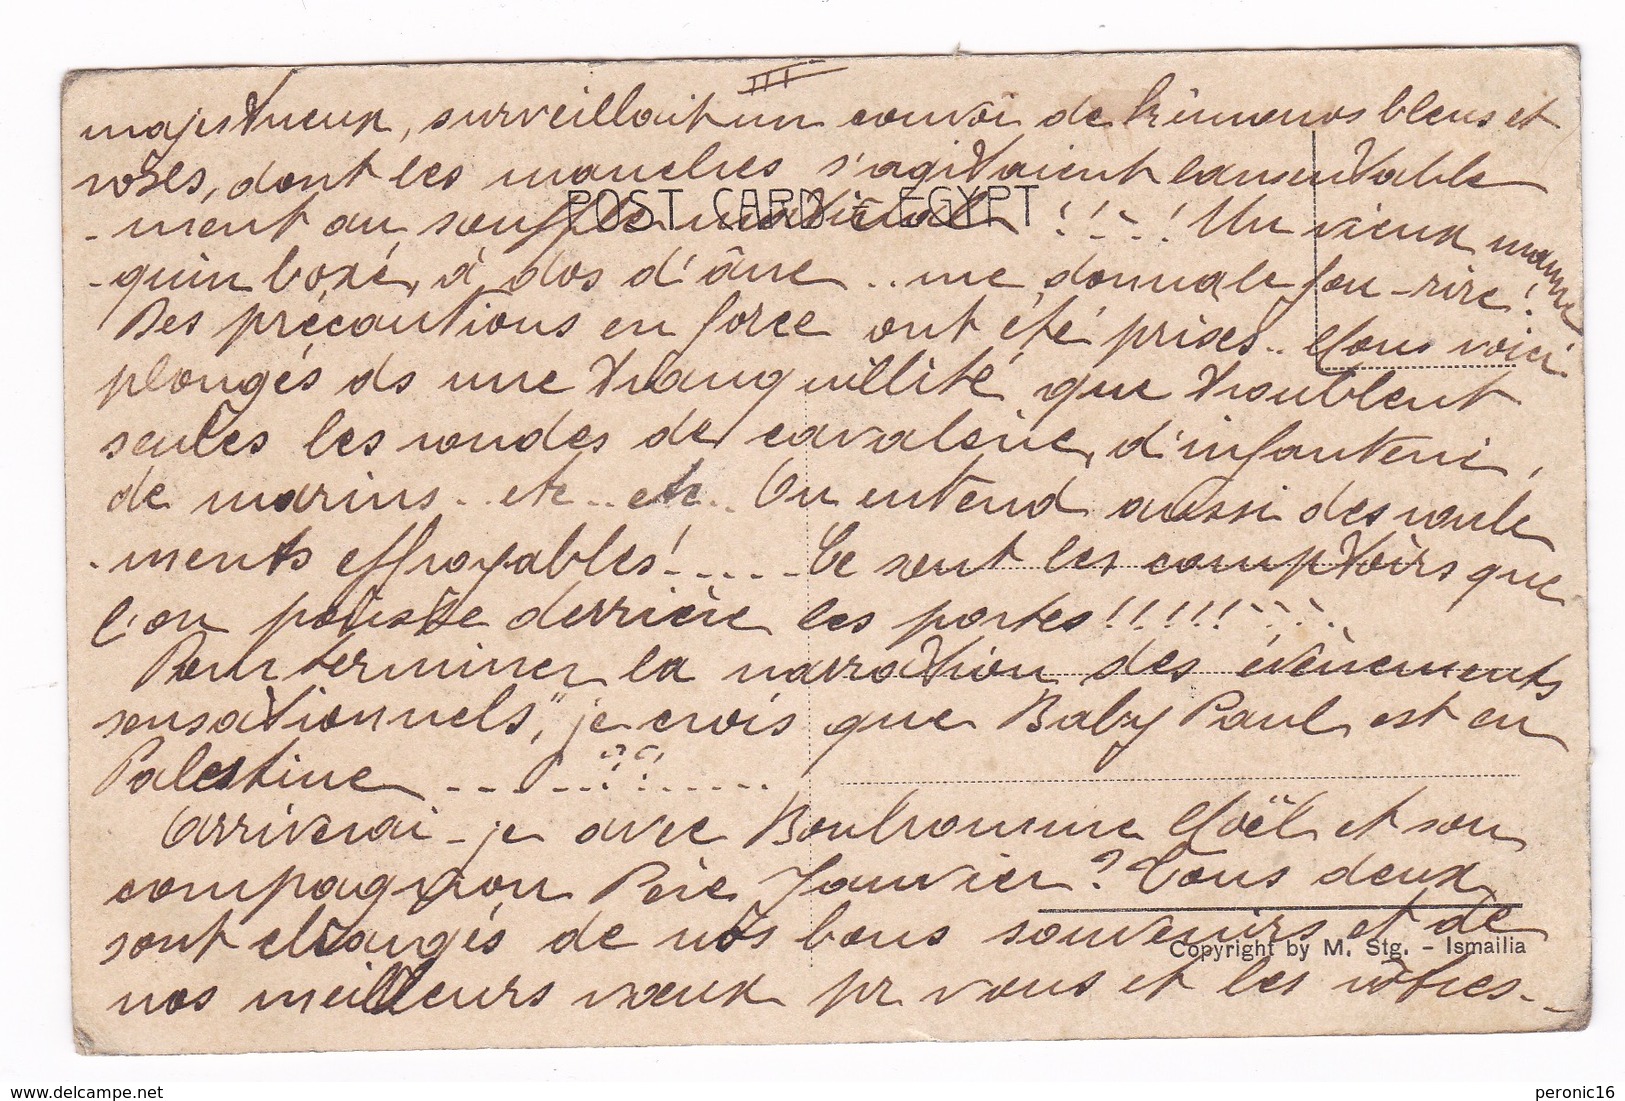 III
majestueux, surveillait un convoi de kimonos bleus et
roses, dont les manches s'agitaient lamentable
POST CARD - EGYPT
-ment au souffle matinal !!--! Un vieux manne
-quin boxé, à dos d'âne .. me donna le fou-rire!
Des précautions en force ont été prises.. Nous voici
plongés ds une tranquillité que troublent
seules les rondes de cavalerie, d'infanterie,
de marins.. etc.. etc.. On entend aussi des roule
-ments effroyables!..... Ce sont les comptoirs que
l'on pousse derrière les portes!!!!!...
Pour terminer la narration des évènements
sensationnels," je crois que Baby Paul est en
Palestine ........??......
Arriverai-je avec Bonhomme Noël et son
compagnon Père Janvier? Tous deux
sont chargés de nos bons souvenirs et de
Copyright by M. Stg. - Ismailia
nos meilleurs vœux pr vous et les vôtres--
delcampe.net
peronic16